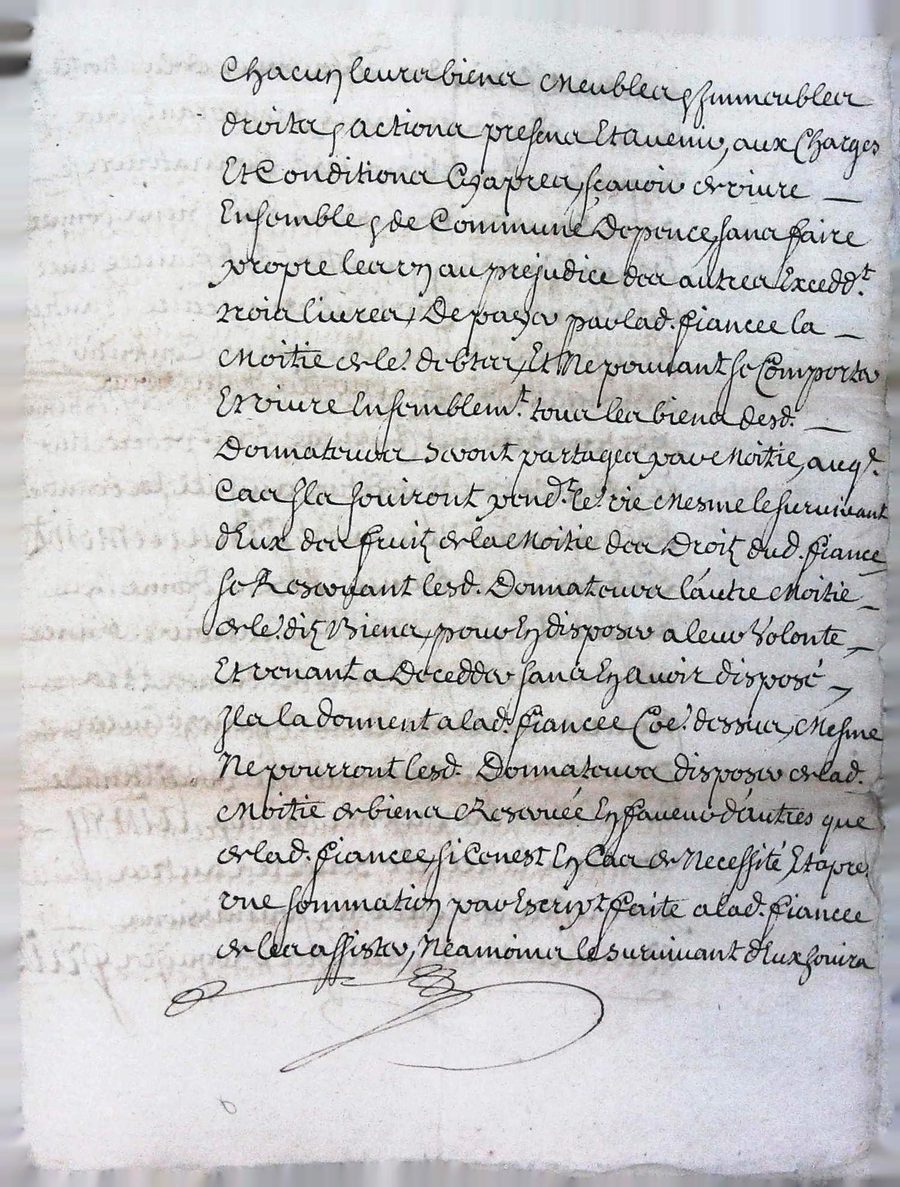 Chacun leurs biens Meubles & Immeubles
droits & actions presens Et avenir, aux Charges
Et Conditions Cy apres, sçavoir de vivre _
Ensemble & de Commune Depence, sans faire
propre les un au prejudice des autres Excedd.t
trois livres, De payer par lad. fiancee la _
Moitie de le.s debtes, Et Ne pouvant se Comporter
Et vivre Ensemblem.t tous les biens desd. _
Donnateurs seront partages par Moitie, auq.l
Cas Ils Jouiront pend.t le.r vie Mesme le survivant
d'Eux des fruits de la Moitie des Droits dud. fiance
se Reservant lesd. Donnateurs l'autre Moitie _
de le.s dits Biens, pour En disposer a leur Volonte _
Et venant a Decedder sans En avoir disposé _
Ils la donnent a lad. fiancee Co.e dessus, Mesme
Ne pourront lesd. Donnateurs disposer de lad.
Moitie de biens Reservée En faveur d'autres que
de lad. fiancee, si Ce n'est En Cas de Necessité, Et apre.
une sommation par Escript faite a lad. fiancee
de les assister, Neamoins le survivant d'Eux Jouira